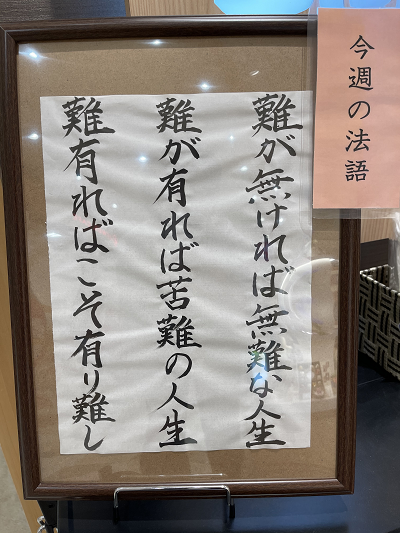 今週の法語
難が無ければ無難な人生
難が有れば苦難の人生
難有ればこそ有り難し